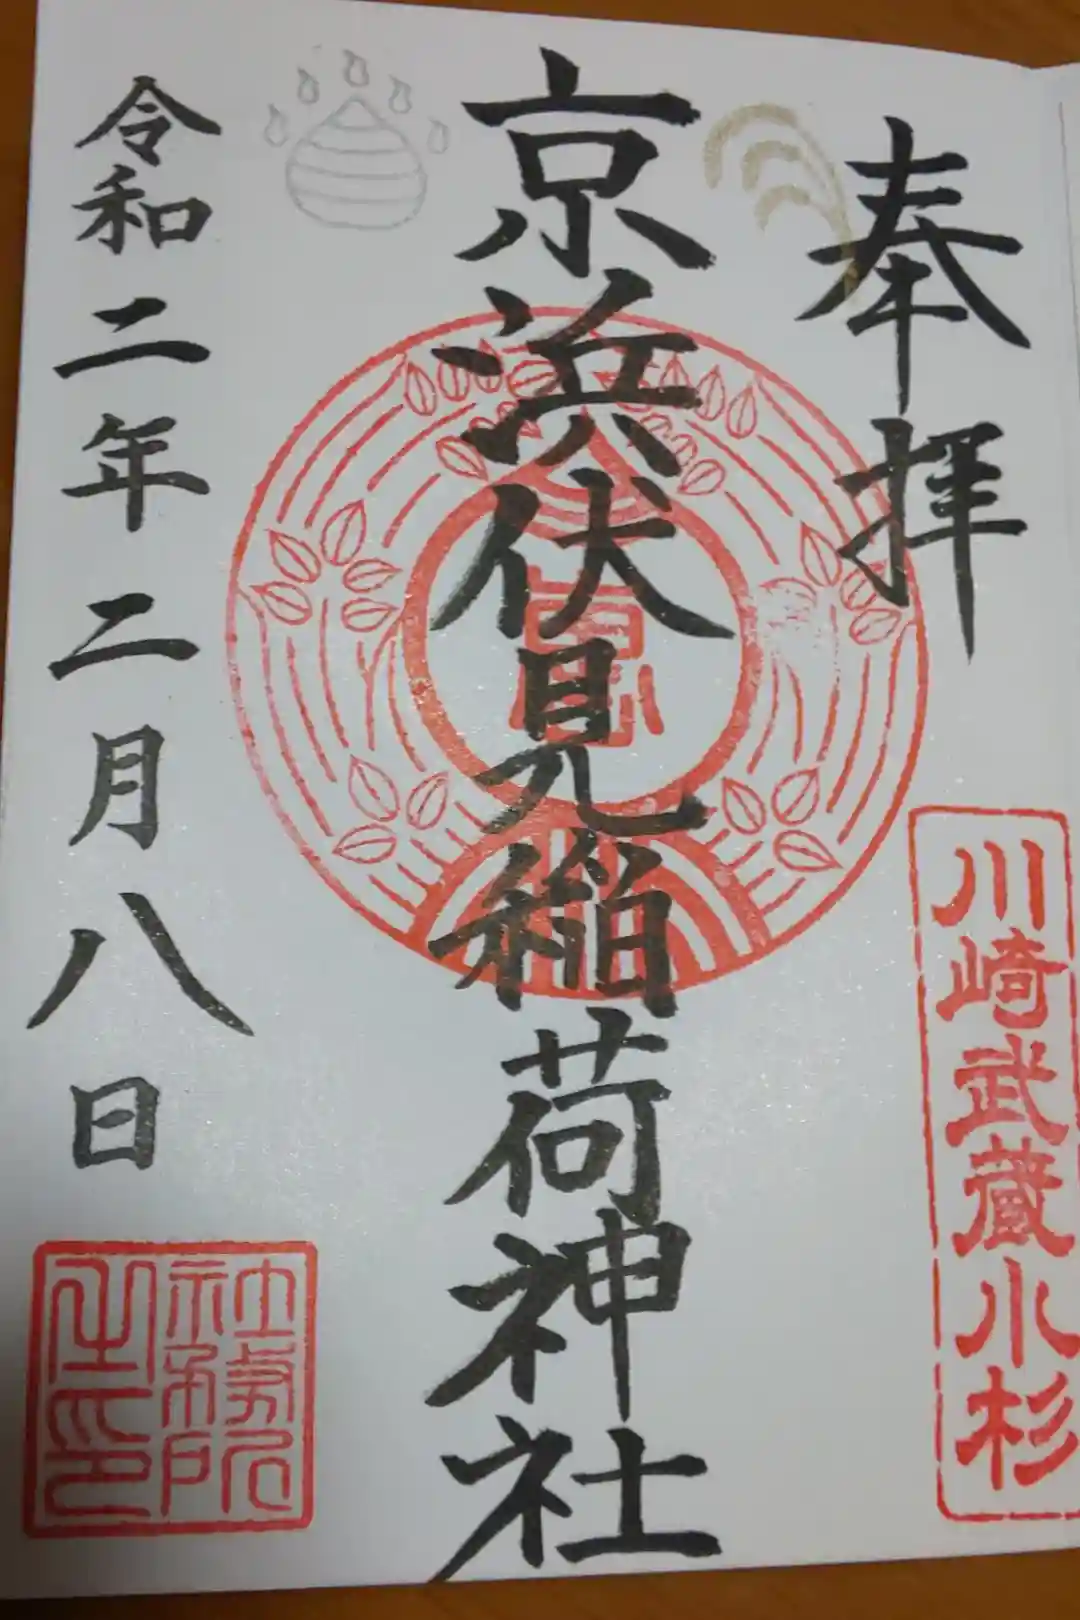 奉拝
川崎武蔵小杉
京浜伏見稲荷神社
令和二年二月八日
社務所之印